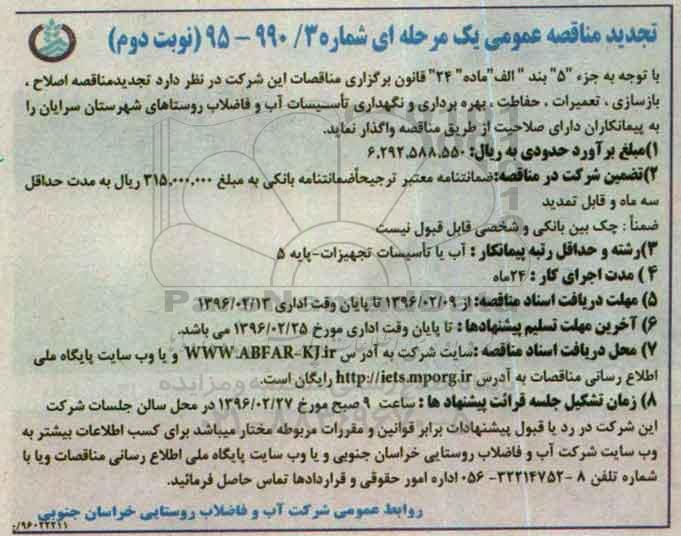 تجدید مناقصه عمومی یک مرحله ای شماره ۳/ ۹۹۰ - ۹۵ (نوبت دوم)
با توجه به جزء "۵" بند " الف"ماده" ۲۴" قانون برگزاری مناقصات این شرکت در نظر دارد تجدیدمناقصه اصلاح ،
بازسازی ، تعمیرات ، حفاطت ، بهره برداری و نگهداری تأسسیسات آب و فاضلاب روستاهای شهرستان سرایان را
به پیمانکاران دارای صلاحیت از طریق مناقصه واگذار نماید.
۱)مبلغ برآورد حدودی به ریال: ۶،۲۹۲،۵۸۸،۵۵۰
۲)تضمین شرکت در مناقصه:ضمانتنامه معتبر ترجیحاًضمانتنامه بانکی به مبلغ ۳۱۵،۰۰۰،۰۰۰ ریال به مدت حداقل
سه ماه و قابل تمدید
ضمناً : چک بین بانکی و شخصی قابل قبول نیست
۳)رشته و حداقل رتبه پیمانکار : آب یا تأسیسات تجهیزات-پایه ۵
۴ ) مدت اجرای کار : ۲۴ماه
۵) مهلت دریافت اسناد مناقصه: از ۱۳۹۶/۰۲/۰۹ تا پایان وقت اداری ۱۳۹۶/۰۲/۱۳
۶) آخرین مهلت تسلیم پیشنهادها : تا پایان وقت اداری مورخ ۱۳۹۶/۰۲/۲۵ می باشد.
۷) محل دریافت اسناد مناقصه :سایت شرکت به آدرس WWW.ABFAR-KJ.ir و یا وب سایت پایگاه ملی
اطلاع رسانی مناقصات به آدرس http://iets.mporg.ir رایگان است.
۸) زمان تشکیل جلسه قرائت پیشنهاد ها : ساعت ۹ صبح مورخ ۱۳۹۶/۰۲/۲۷ در محل سالن جلسات شرکت
این شرکت در رد یا قبول پیشنهادات برابر قوانین و مقررات مربوطه مختار میباشد برای کسب اطلاعات بیشتر به
وب سایت شرکت آب و فاضلاب روستایی خراسان جنوبی و یا وب سایت پایگاه ملی اطلاع رسانی مناقصات ویا با
شماره تلفن ۸ -۳۲۲۱۴۷۵۲- ۰۵۶ اداره امور حقوقی و قراردادها تماس حاصل فرمائید.
روابط عمومی شرکت آب و فاضلاب روستایی خراسان جنوبی
۹۶۰۲۲۲۱۱/